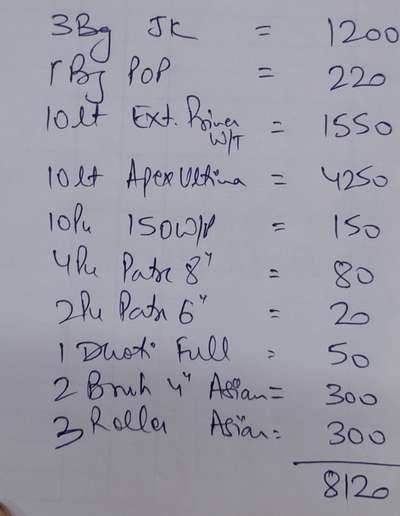 3 Bg JK = 1200
1 Bg POP = 220
10 lt Ext. Primer W/T = 1550
10 lt Apex Ultima = 4250
10 Pc 150 W/P = 150
4 Pc Patr 8" = 80
2 Pc Patr 6" = 20
1 Full = 50
2 Brush 4" Asian = 300
3 Roller Asian = 300
8120